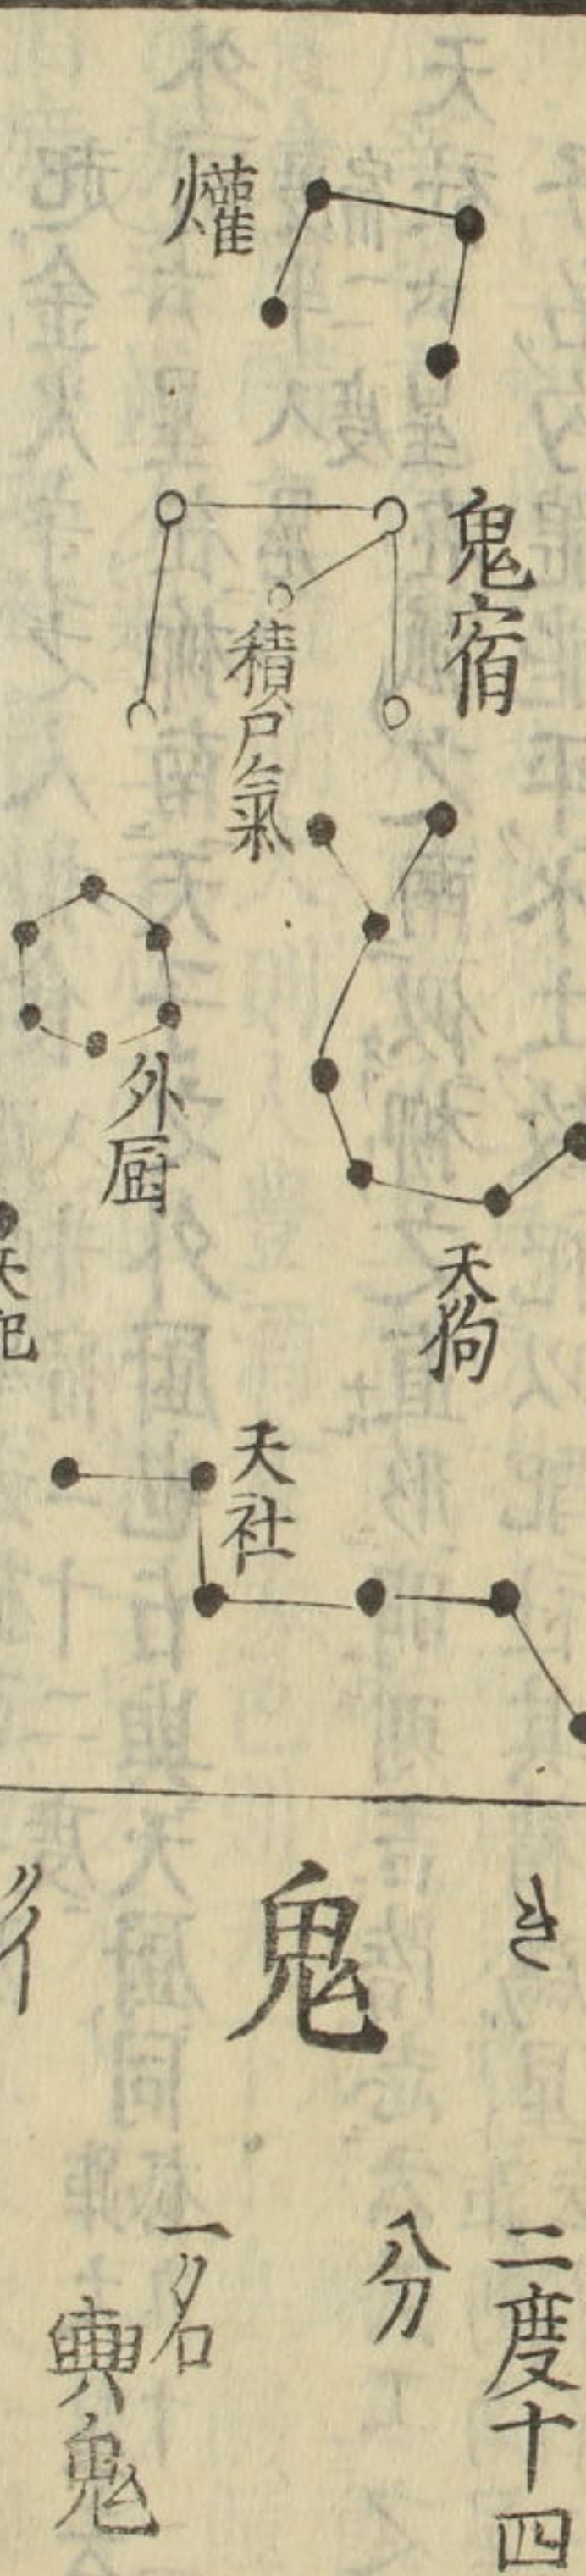 爟
鬼宿
積尸氣
外厨
天狗
天社
き
鬼
二度十四
分
一名
輿鬼